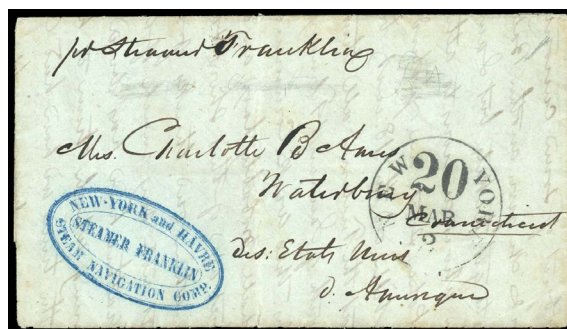 pr Steamer Franklin
Mrs. Charlotte B Ames
Waterbury
Connecticut
des: Etats Unis
d. Amerique
NEW YORK
20
MAR
3
NEW-YORK and HAVRE
STEAMER FRANKLIN
STEAM NAVIGATION COMP.